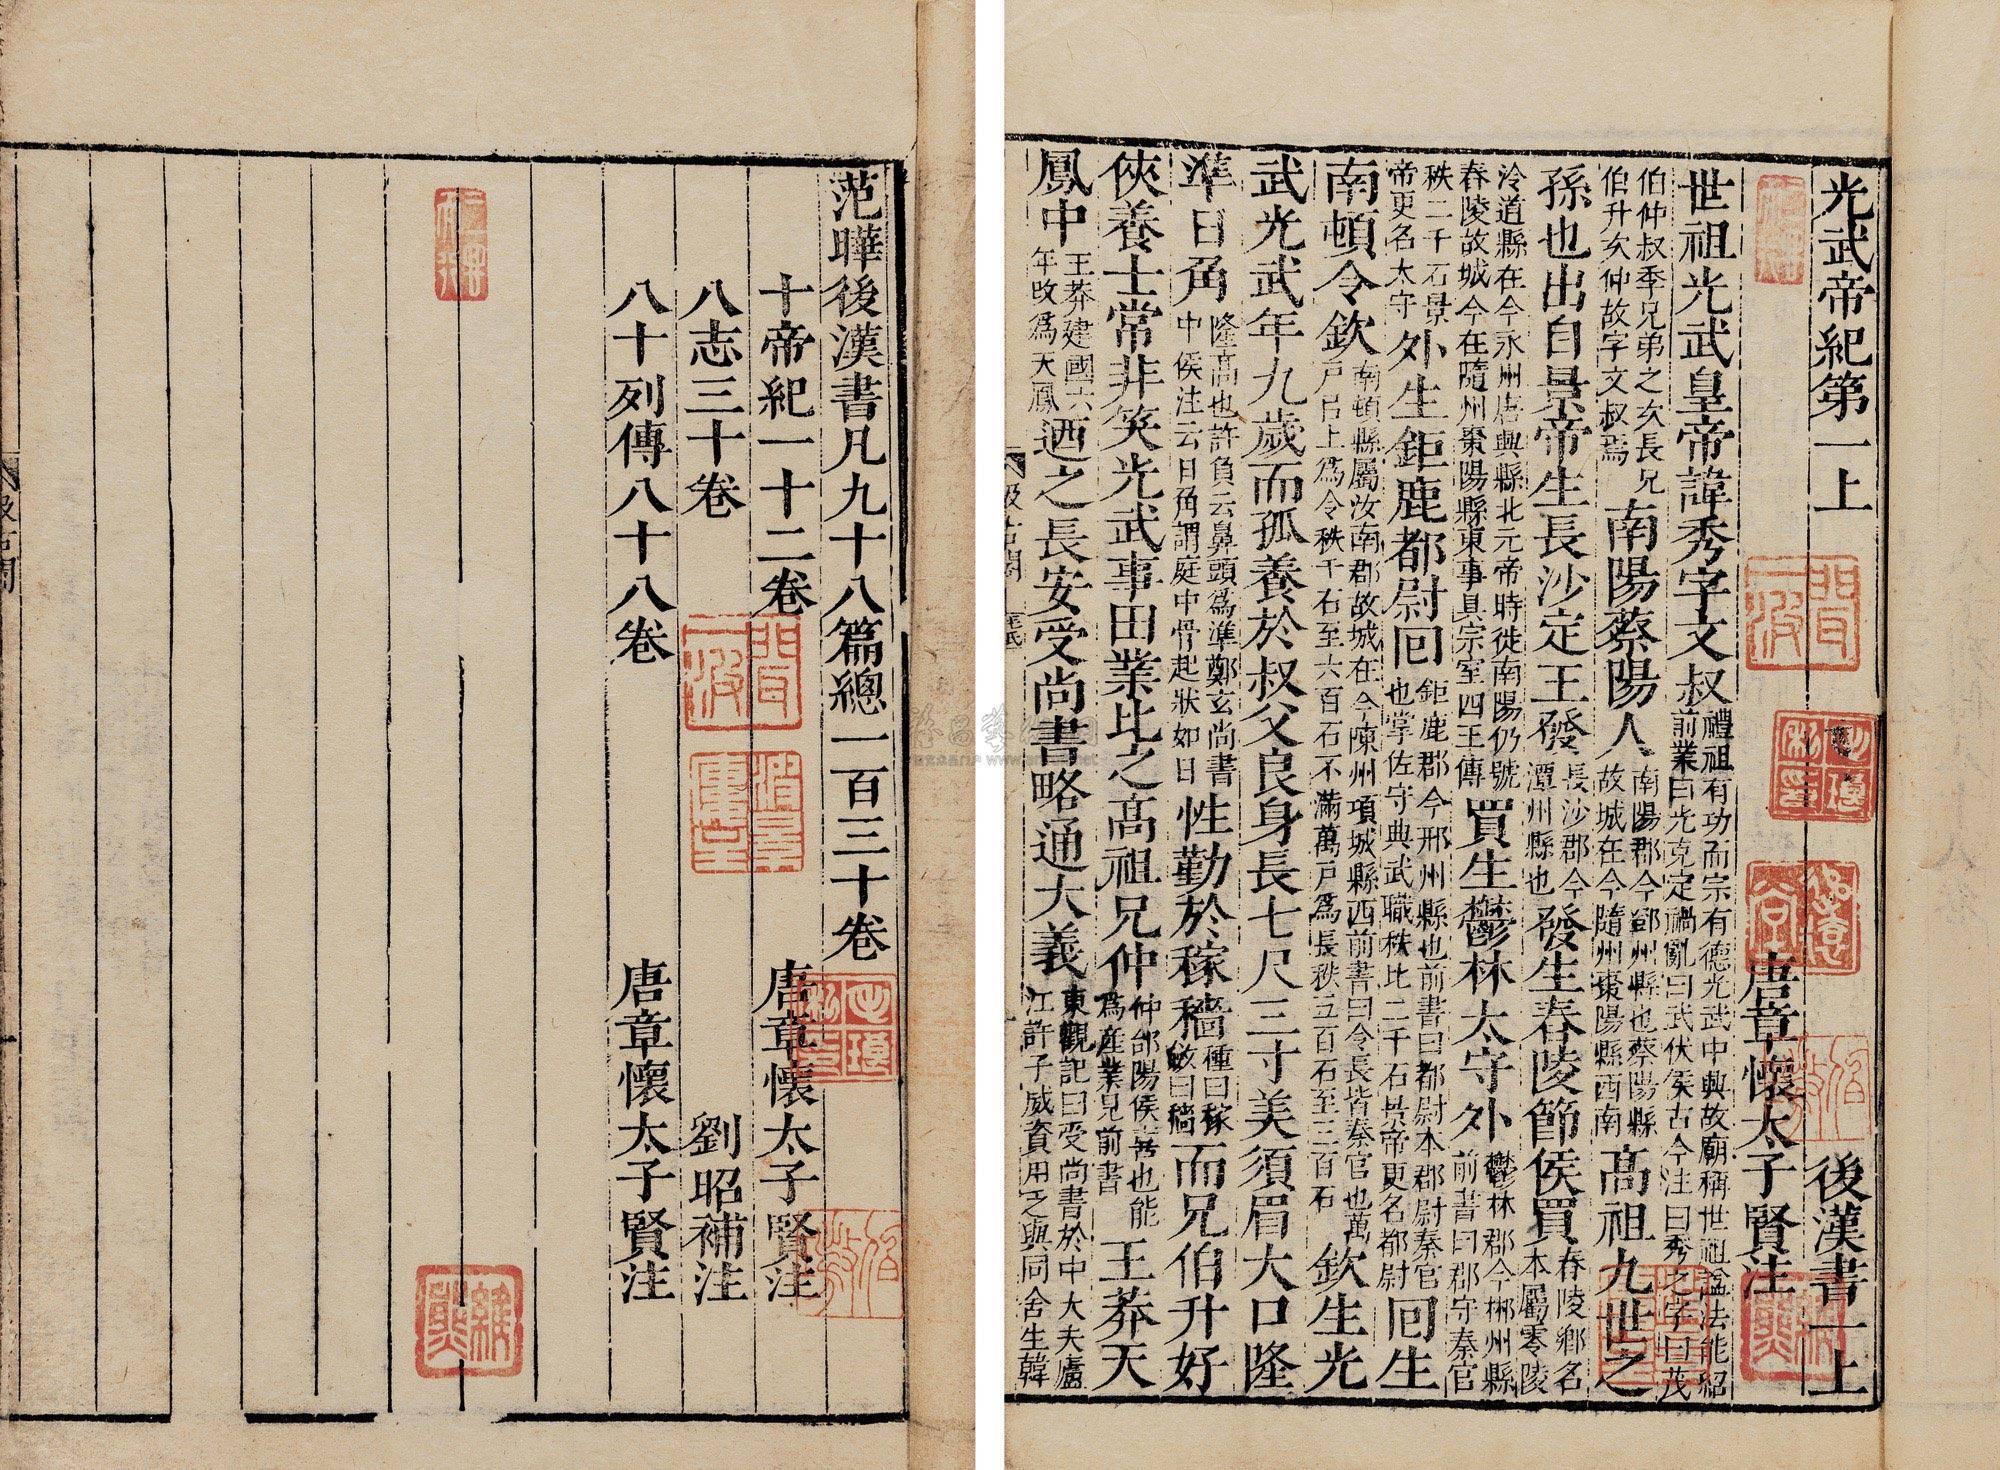 光武帝紀第一上 後漢書一上
唐章懷太子賢注
世祖光武皇帝諱秀字文叔禮祖有功而宗有德光武中興故廟稱世祖諡法能紹前業曰光克定禍亂曰武伏侯古今注曰秀之字曰茂
伯仲叔季兄弟之次長兄伯升次仲故字文叔焉南陽蔡陽人南陽郡今鄧州縣也蔡陽縣故城在今隨州棗陽縣西南高祖九世之
孫也出自景帝生長沙定王發長沙郡今潭州縣也發生舂陵節侯買舂陵鄉名本屬零陵
泠道縣在今永州唐興縣北元帝時徙南陽仍號舂陵故城今在隨州棗陽縣東事具宗室四王傳買生鬱林太守外鬱林郡今郴州縣前書曰郡守秦官
秩二千石景帝更名太守外生鉅鹿都尉囘鉅鹿郡今邢州縣也前書曰都尉本郡尉秦官也掌佐守典武職秩比二千石景帝更名都尉囘生
南頓令欽南頓縣屬汝南郡故城在今陳州項城縣西前書曰令長皆秦官也萬戸㠯上爲令秩千石至六百石不滿萬戸爲長秩五百石至三百石欽生光
武光武年九歲而孤養於叔父良身長七尺三寸美須眉大口隆
準日角隆高也許負云鼻頭爲準鄭玄尚書中侯注云日角謂庭中骨起狀如日性勤於稼穡種曰稼斂曰穡而兄伯升好
俠養士常非笑光武事田業比之高祖兄仲仲郃陽侯喜也能爲產業見前書王莽天
鳳中王莽建國六年改爲天鳳迺之長安受尚書略通大義東觀記曰受尚書於中大夫廬江許子威資用乏與同舍生韓
汲古閣 毛氏
范曄後漢書凡九十八篇總一百三十卷
十帝紀一十二卷 唐章懷太子賢注
八志三十卷 劉昭補注
八十列傳八十八卷 唐章懷太子賢注
汲古閣